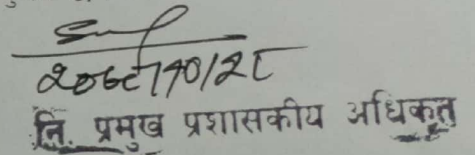 २०७८/१०/२८
नि. प्रमुख प्रशासकीय अधिकृत